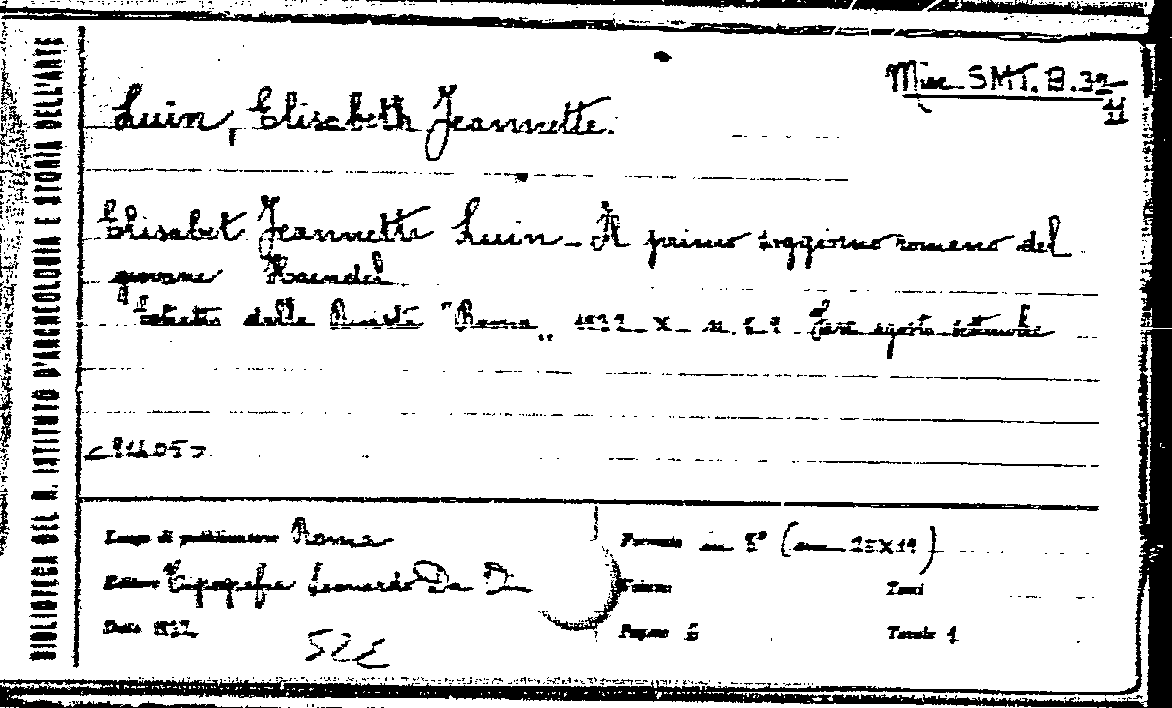 BIBLIOTECA DEL R. ISTITUTO D'ARCHEOLOGIA E STORIA DELL'ARTE
Misc. SMT. B. 32/11
Luin, Elisabeth Jeannette.
Elisabet Jeannette Luin - Il primo soggiorno romano del
giovane Haendel
Estratto dalla Rivista "Roma" 1932 - X - n.
<91405>
Luogo di pubblicazione Roma
Formato in 8° (cm 25X19)
Editore Tipografia Leonardo Da
Volume
Tomi
Data 1932
Pagine 6
Tavole 1